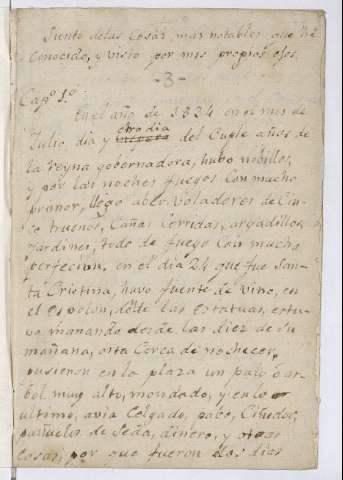 Siento delas Cosas mas notables que hé
Conocido, y visto por mis propios ojos.
-3-
Cap.º 1.º
En el año de 1834 en el mes de
Julio, dia y otro dia vispera del Cuple años de
la reyna gobernadora, hubo nobillos,
y por las noches fuegos con mucho
primor, llego abér voladores de Cin-
co truenos, Cañas Corridas, argadillos,
Jardines, todo de fuego Con mucha
perfecion, en el dia 24 que fue San-
ta Cristina, huvo fuente de vino, en
el Espolon, dóde las Estatuas, estu-
vo manando desde las diez de su
mañana, asta Cerca de nochecer,
pusieron en la plaza un palo ó ar-
bol muy alto, mondado, y en lo
ultimo, avia Colgado, pabo, Ciñidor,
pañuelos de seda, dinero, y otras
Cosas, por que fueron dos dias